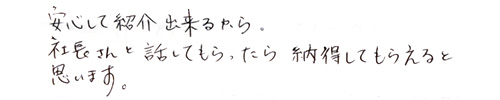 安心して紹介出来るから。
社長さんと話してもらったら納得してもらえると
思います。